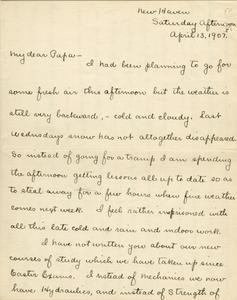 New Haven
Saturday Afternoon
April 13, 1907.
My dear Papa -
I had been planning to go for
some fresh air this afternoon but the weather is
still very backward, - cold and cloudy. Last
Wednesdays snow has not altogether disappeared.
So instead of going for a tramp I am spending
the afternoon getting lessons all up to date so as
to steal away for a few hours when fine weather
comes next week. I feel rather imprisoned with
all this late cold and rain and indoor work.
I have not written you about our new
courses of study which we have taken up since
Easter Exams. Instead of Mechanics we now
have Hydraulics, and instead of Strength of